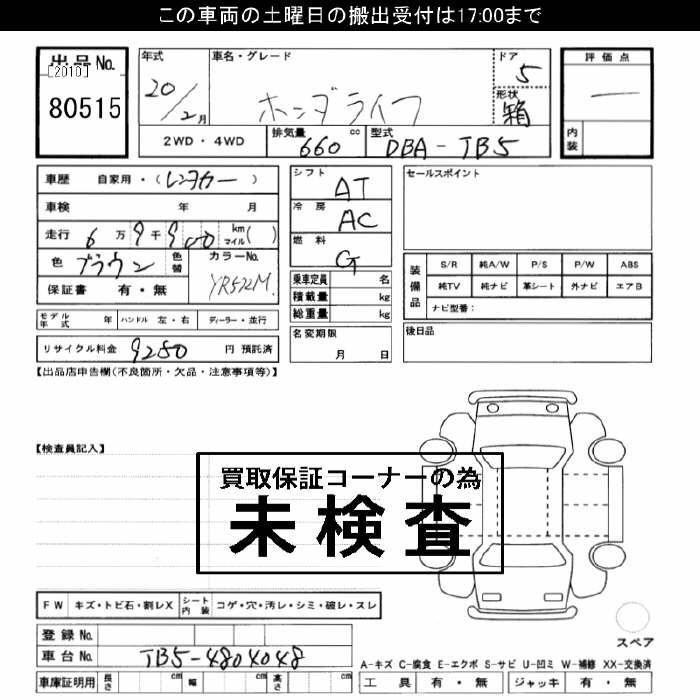 この車両の土曜日の搬出受付は17:00まで
出品No.
[2010]
80515
年式
20/2月
車名・グレード
ホンダライフ
ドア
5
形状
箱
評価点
―
内装
2WD・4WD
排気量 660 cc
型式 DBA-TB5
車歴 自家用・(レンタカー)
車検 年 月
走行 6万9千900 km マイル( )
色 ブラウン 色替
カラーNo.
YR572M
保証書 有・無
シフト
AT
冷房
AC
燃料
G
乗車定員 名
積載量 kg
総重量 kg
セールスポイント
装備品
S/R 純A/W P/S P/W ABS
純TV 純ナビ 革シート 外ナビ エアB
ナビ型番:
モデル年式 年 ハンドル 左・右 ディーラー・並行
名変期限
月 日
後日品
リサイクル料金 9280 円 預託済
【出品店申告欄(不良箇所・欠品・注意事項等)】
【検査員記入】
買取保証コーナーの為
未検査
FW キズ・トビ石・割レX シート内装 コゲ・穴・汚レ・シミ・破レ・スレ
スペア
登録No.
車台No. TB5-4804048
A-キズ C-腐食 E-エクボ S-サビ U-凹ミ W-補修 XX-交換済
車庫証明用 長さ cm 幅 cm 高さ cm
工具 有・無 ジャッキ 有・無